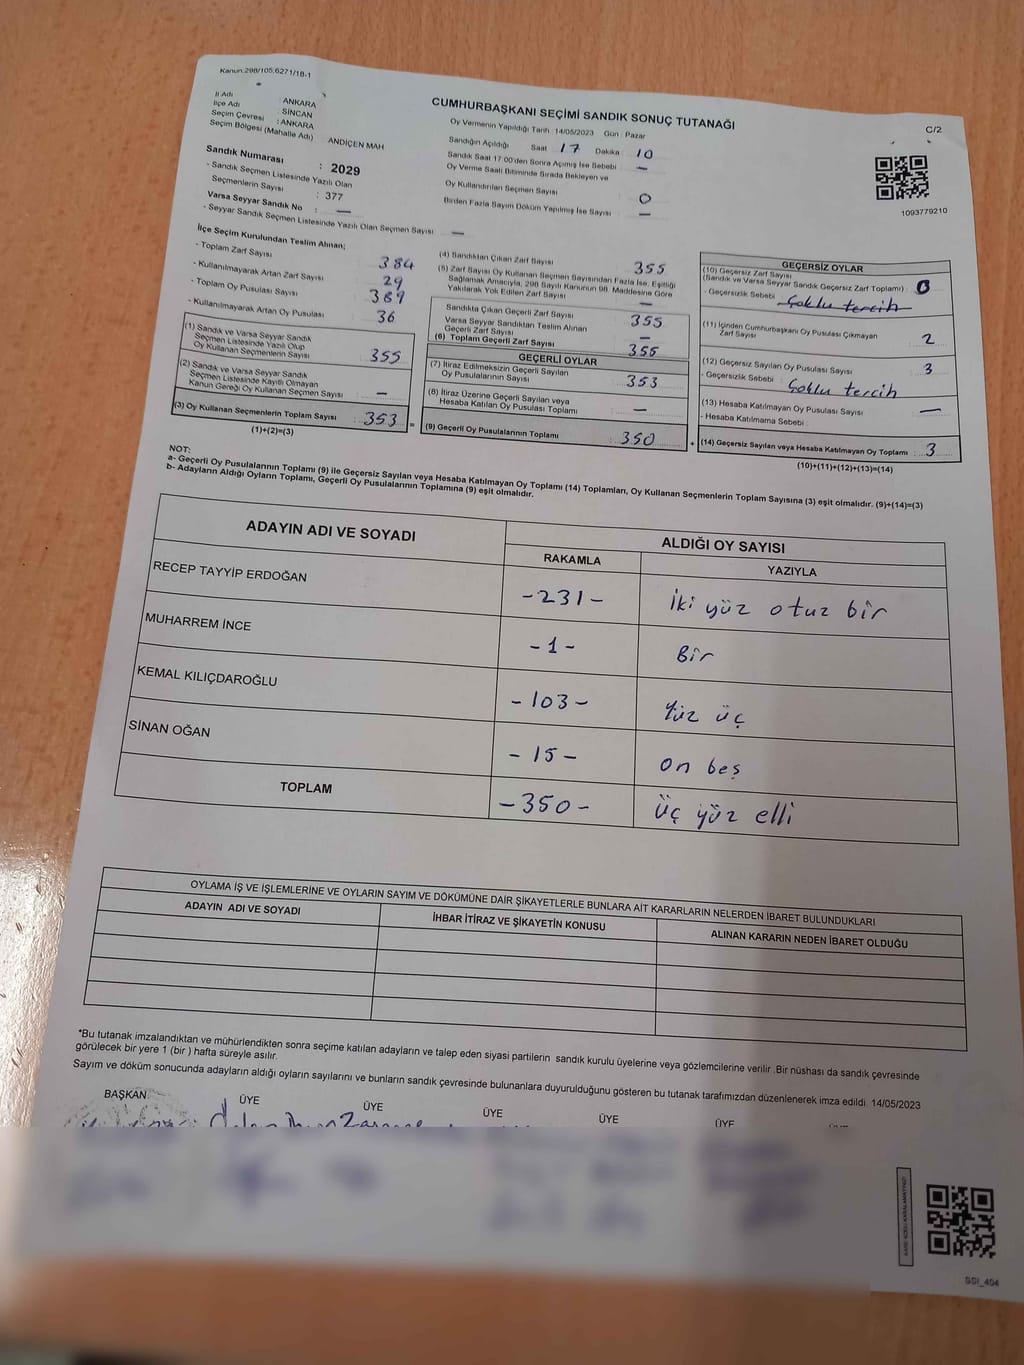 Kanun:298/105,6271/18-1
İl Adı : ANKARA
İlçe Adı : SİNCAN
Seçim Çevresi : ANKARA
Seçim Bölgesi (Mahalle Adı) ANDİÇEN MAH
Sandık Numarası : 2029
- Sandık Seçmen Listesinde Yazılı Olan
Seçmenlerin Sayısı : 377
Varsa Seyyar Sandık No : —
- Seyyar Sandık Seçmen Listesinde Yazılı Olan Seçmen Sayısı —
CUMHURBAŞKANI SEÇİMİ SANDIK SONUÇ TUTANAĞI
Oy Vermenin Yapıldığı Tarih 14/05/2023 Gün : Pazar
Sandığın Açıldığı Saat 17 Dakika 10
Sandık Saat 17:00'den Sonra Açılmış İse Sebebi —
Oy Verme Saati Bitiminde Sırada Bekleyen ve
Oy Kullandırılan Seçmen Sayısı 0
Birden Fazla Sayım Döküm Yapılmış İse Sayısı —
C/2
1093779210
İlçe Seçim Kurulundan Teslim Alınan;
- Toplam Zarf Sayısı 384
- Kullanılmayarak Artan Zarf Sayısı 29
- Toplam Oy Pusulası Sayısı 389
- Kullanılmayarak Artan Oy Pusulası 36
(1) Sandık ve Varsa Seyyar Sandık
Seçmen Listesinde Yazılı Olup
Oy Kullanan Seçmenlerin Sayısı 355
(2) Sandık ve Varsa Seyyar Sandık
Seçmen Listesinde Kayıtlı Olmayan
Kanun Gereği Oy Kullanan Seçmen Sayısı : —
(3) Oy Kullanan Seçmenlerin Toplam Sayısı : 353 =
(1)+(2)=(3)
(4) Sandıktan Çıkan Zarf Sayısı 355
(5) Zarf Sayısı Oy Kullanan Seçmen Sayısından Fazla İse, Eşitliği
Sağlamak Amacıyla, 298 Sayılı Kanunun 98. Maddesine Göre
Yakılarak Yok Edilen Zarf Sayısı —
Sandıkta Çıkan Geçerli Zarf Sayısı 355
Varsa Seyyar Sandıktan Teslim Alınan
Geçerli Zarf Sayısı —
(6) Toplam Geçerli Zarf Sayısı 355
GEÇERLİ OYLAR
(7) İtiraz Edilmeksizin Geçerli Sayılan
Oy Pusulalarının Sayısı : 353
(8) İtiraz Üzerine Geçerli Sayılan veya
Hesaba Katılan Oy Pusulası Toplamı : —
(9) Geçerli Oy Pusulalarının Toplamı : 350 +
GEÇERSİZ OYLAR
(10) Geçersiz Zarf Sayısı
(Sandık ve Varsa Seyyar Sandık Geçersiz Zarf Toplamı) : 0
- Geçersizlik Sebebi : Çoklu tercih
(11) İçinden Cumhurbaşkanı Oy Pusulası Çıkmayan
Zarf Sayısı 2
(12) Geçersiz Sayılan Oy Pusulası Sayısı : 3
- Geçersizlik Sebebi : Çoklu tercih
(13) Hesaba Katılmayan Oy Pusulası Sayısı : —
- Hesaba Katılmama Sebebi :
(14) Geçersiz Sayılan veya Hesaba Katılmayan Oy Toplamı : 3
(10)+(11)+(12)+(13)=(14)
NOT:
a- Geçerli Oy Pusulalarının Toplamı (9) ile Geçersiz Sayılan veya Hesaba Katılmayan Oy Toplamı (14) Toplamları, Oy Kullanan Seçmenlerin Toplam Sayısına (3) eşit olmalıdır. (9)+(14)=(3)
b- Adayların Aldığı Oyların Toplamı, Geçerli Oy Pusulalarının Toplamına (9) eşit olmalıdır.
ADAYIN ADI VE SOYADI ALDIĞI OY SAYISI
RAKAMLA YAZIYLA
RECEP TAYYİP ERDOĞAN -231- İki yüz otuz bir
MUHARREM İNCE -1- Bir
KEMAL KILIÇDAROĞLU -103- Yüz üç
SİNAN OĞAN -15- On beş
TOPLAM -350- Üç yüz elli
OYLAMA İŞ VE İŞLEMLERİNE VE OYLARIN SAYIM VE DÖKÜMÜNE DAİR ŞİKAYETLERLE BUNLARA AİT KARARLARIN NELERDEN İBARET BULUNDUKLARI
ADAYIN ADI VE SOYADI İHBAR İTİRAZ VE ŞİKAYETİN KONUSU ALINAN KARARIN NEDEN İBARET OLDUĞU
*Bu tutanak imzalandıktan ve mühürlendikten sonra seçime katılan adayların ve talep eden siyasi partilerin sandık kurulu üyelerine veya gözlemcilerine verilir .Bir nüshası da sandık çevresinde
görülecek bir yere 1 (bir ) hafta süreyle asılır.
Sayım ve döküm sonucunda adayların aldığı oyların sayılarını ve bunların sandık çevresinde bulunanlara duyurulduğunu gösteren bu tutanak tarafımızdan düzenlenerek imza edildi. 14/05/2023
BAŞKAN ÜYE ÜYE ÜYE ÜYE ÜYE
SSI_404